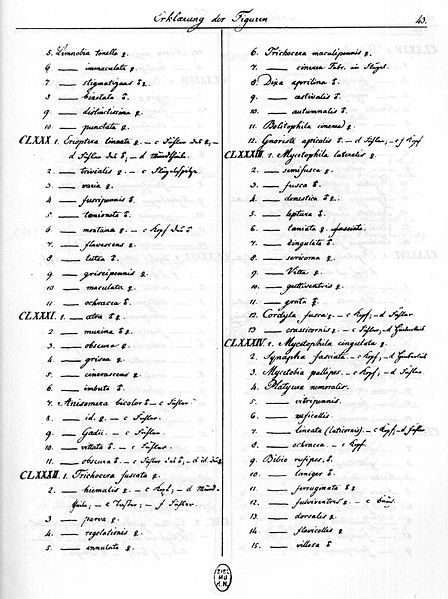 Erklärung der Figuren
43.
5. Limnobia tenella ♀.
6 — immaculata ♀.
7 — stigmatizans ♂♀.
8 — bizotata ♂.
9. — distinctissima ♀.
10. — punctata ♀.
CLXXX 1. Erioptera lineata ♀. – c Fühler des ♀, –
d Fühler des ♂, – d Mundtheile.
2. — trivialis ♀. – c Flügelspitze.
3. — varia ♀.
4. — fuscipennis ♂.
5. — taenionota ♂.
6. — montana ♀. – c Kopf des ♂
7. — flavescens ♀.
8. — lutea ♂.
9. — griseipennis ♀.
10. — maculata ♀.
11. — ochracea ♂.
CLXXXI. 1. — atra ♂♀.
2. — murina ♂♀.
3. — obscura ♀.
4. — grisea ♀.
5. — cinerascens ♀.
6. — imbuta ♂.
7. Anisomera bicolor ♂ – c Fühler.
8. — id. ♀. – c Fühler.
9. — Gaedii. – c Fühler.
10. — vittata ♂. – c Fühler.
11. — obscura ♂. – c Fühler des ♂, – d id. des ♀
CLXXXII. 1. Trichocera fuscata ♀.
2. — hiemalis ♀. – c Kopf, – d Mund-
theile, – e Taster, – f Fühler.
3 — parva ♀.
4. — regelationis ♀.
5. — annulata ♂.
6. Trichocera maculipennis ♀.
7. — cinerea Fabr. ein Flügel.
8. Dixa aprilina ♂.
9. — aestivalis ♂.
10. — autumnalis ♂.
11. Bolitophila cinerea ♀.
12. Gnoriste apicalis ♂. – d Fühler, – f Kopf
CLXXXIII 1. Mycetophila lateralis ♀.
2. — semifusca ♀.
3. — fusca ♂.
4. — domestica ♂♀.
5. — leptura ♂.
6. — taniata ♀ fasciata.
7. — cingulata ♂.
8. — sericoma ♀.
9. — Vitta ♀.
10. — guttiventris ♀.
11. — grata ♀.
12. Cordyla fusca ♀. – c Kopf, – d Fühler
13 — crassicornis ♀. – c Fühler, – d
CLXXXIV. 1. Mycetophila cingulata ♀.
2. Synapha fasciata. – c Kopf, – d
3. Mycetobia pallipes. – c Kopf, – d Fühler.
4. Platyura nemoralis.
5. — vitripennis.
6. — ruficollis.
7. — lineata (laticornis). – c Kopf, – d Fühler
8. — ochracea. – c Kopf.
9. Bibio rufipes ♂.
10. — laniger ♂.
11. — ferruginata ♂♀
12. — fulviventris ♀. – c
13. — dorsalis ♀.
14. — flavicollis ♀.
15. — villosa ♂